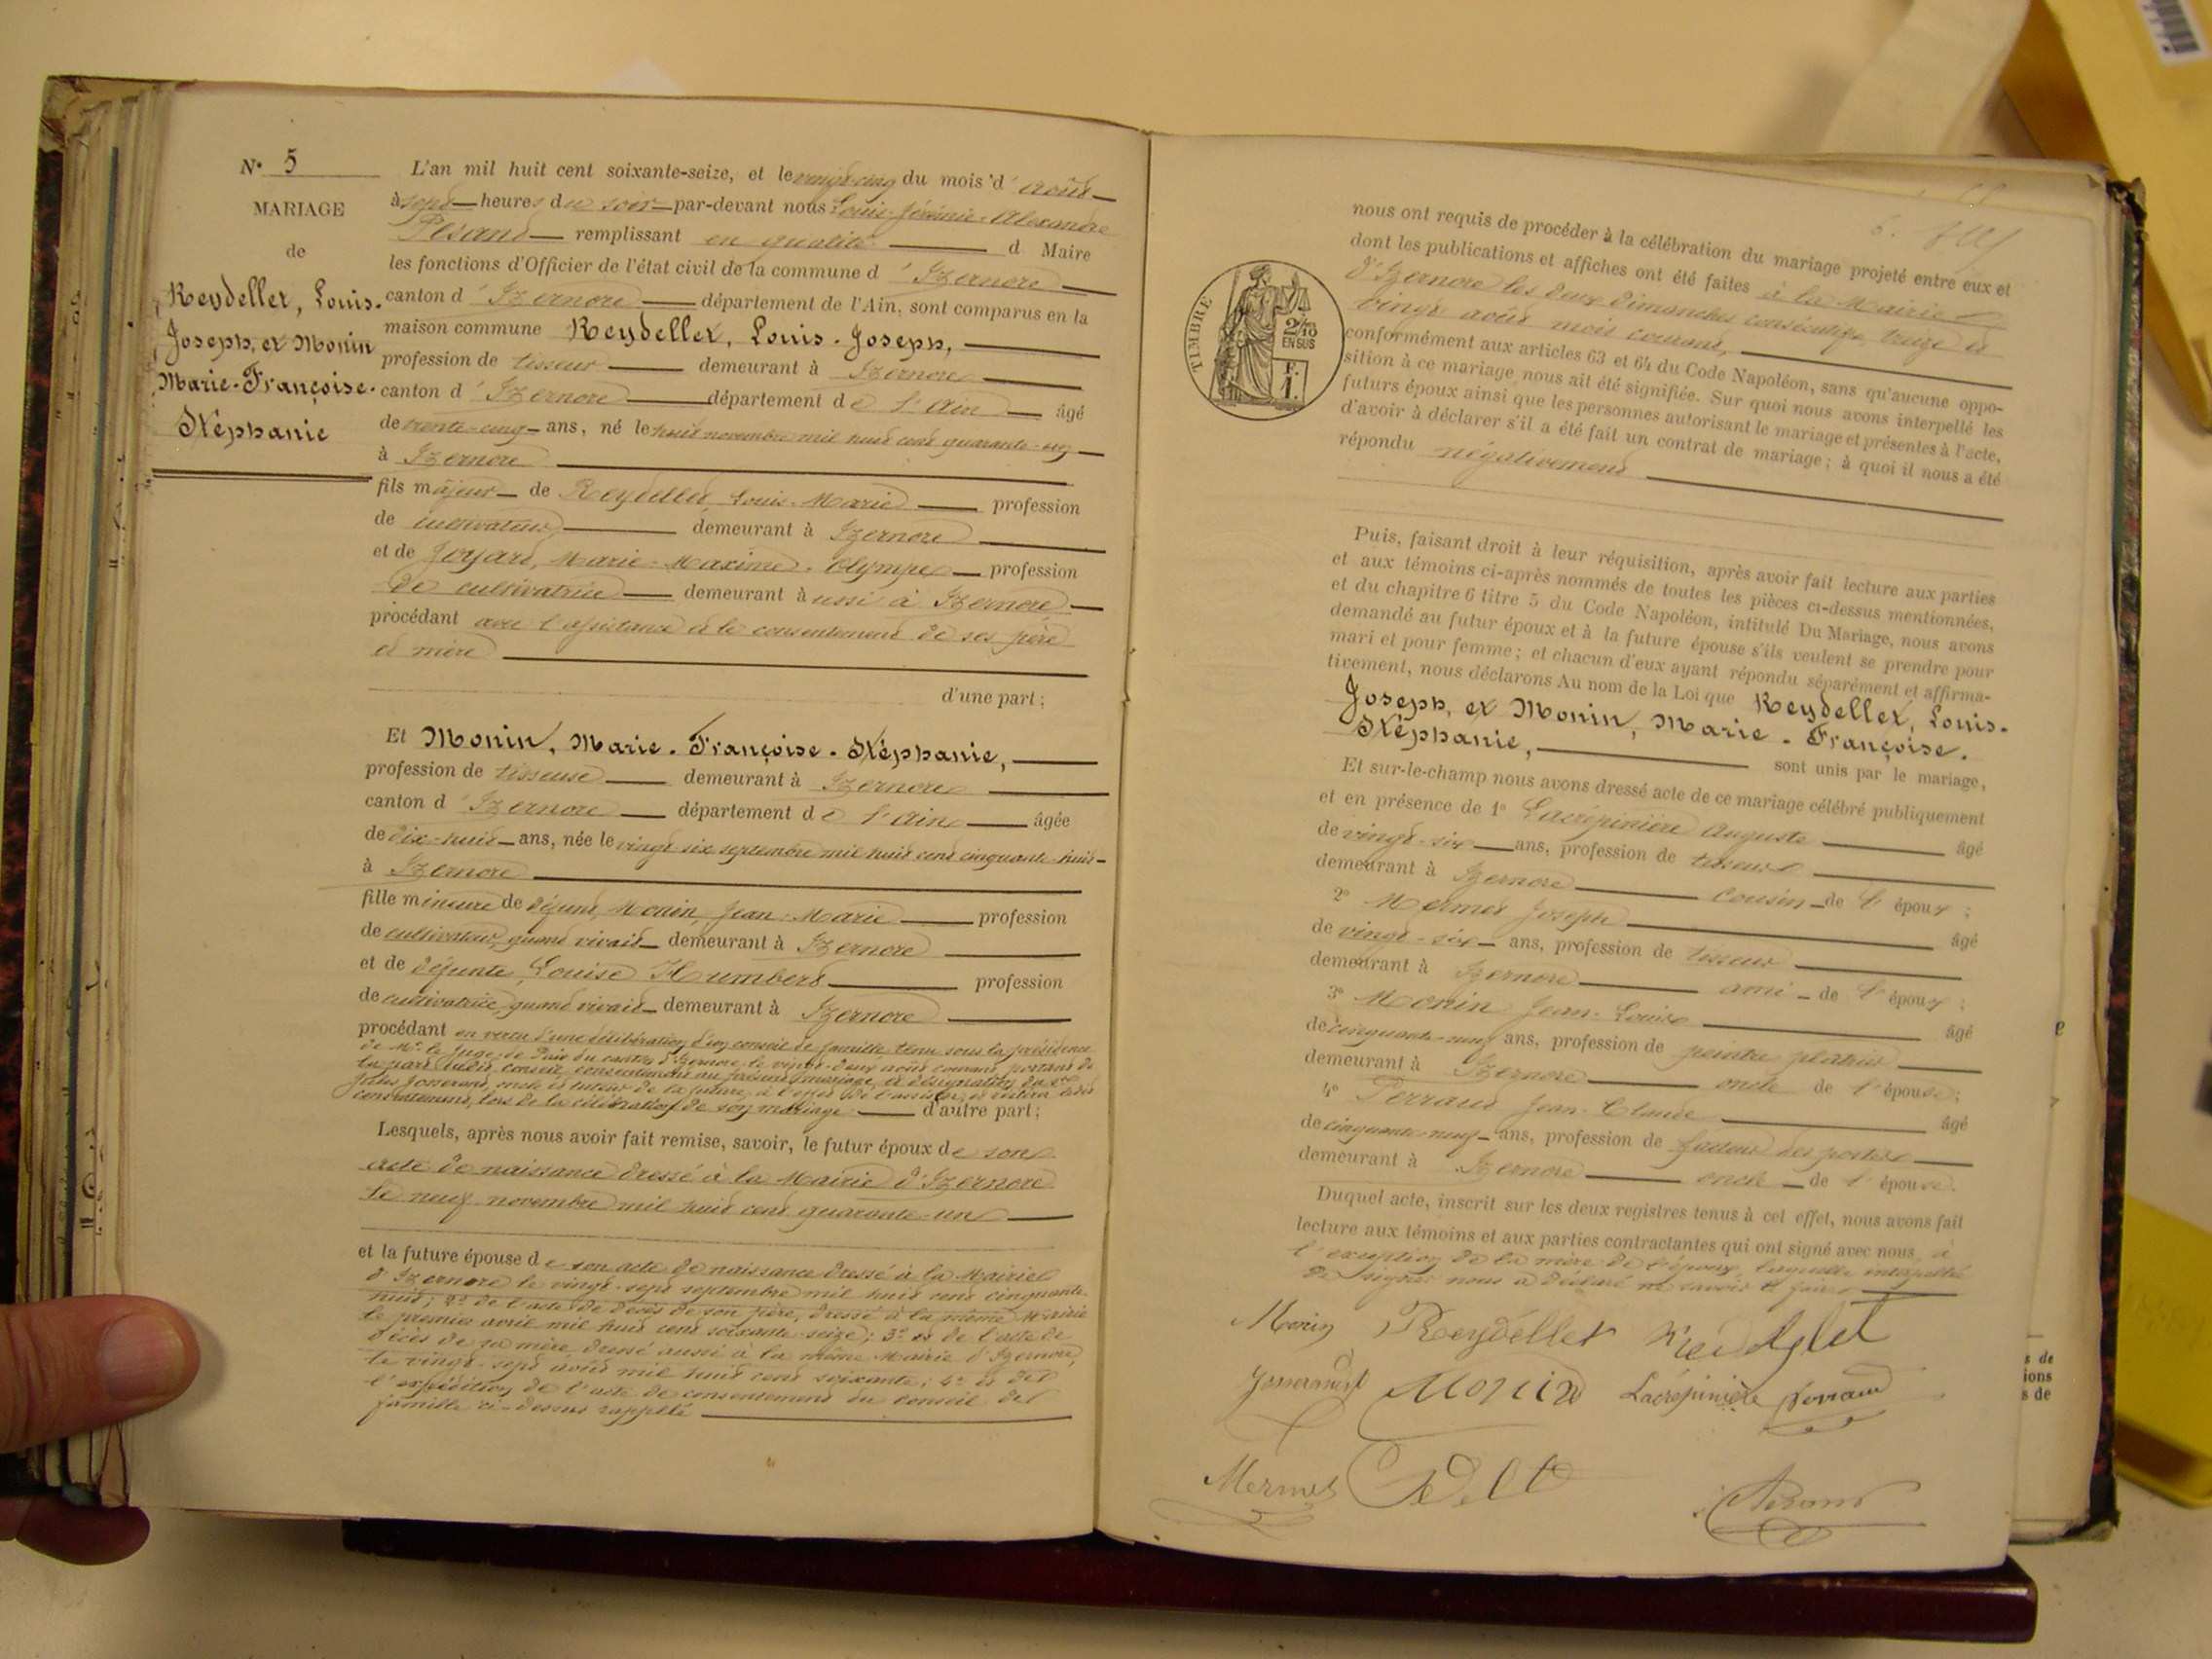 N° 5
MARIAGE
de
Reydellet, Louis-
Joseph, et Monin
Marie-Françoise-
Stéphanie
L'an mil huit cent soixante-seize, et le vingt-cinq du mois d'août
à sept heures du soir par-devant nous Louis-Jérémie-Alexandre
Pesand remplissant en qualité d Maire
les fonctions d'Officier de l'état civil de la commune d'Izernore
canton d'Izernore département de l'Ain, sont comparus en la
maison commune Reydellet, Louis-Joseph,
profession de tisseur demeurant à Izernore
canton d'Izernore département de l'Ain âgé
de trente-cinq ans, né le huit novembre mil huit cent quarante-un
à Izernore
fils majeur de Reydellet, Louis-Marie profession
de cultivateur demeurant à Izernore
et de Joyard, Marie-Maxime-Olympe profession
de cultivatrice demeurant aussi à Izernore
procédant avec l'assistance et le consentement de ses père
et mère
d'une part;
Et Monin, Marie-Françoise-Stéphanie,
profession de tisseuse demeurant à Izernore
canton d'Izernore département de l'Ain âgée
de dix-huit ans, née le vingt-six septembre mil huit cent cinquante-huit
à Izernore
fille mineure de défunt, Monin, Jean-Marie profession
de cultivateur, quand vivait demeurant à Izernore
et de défunte, Louise Humbert profession
de cultivatrice, quand vivait demeurant à Izernore
procédant en vertu d'une délibération d'un conseil de famille tenu sous la présidence
de Mr. le Juge de Paix du canton d'Izernore le vingt-deux août courant, portant de
la part dudit conseil, consentement au présent mariage, et désignation du sr
Jules Josserand, oncle et tuteur de la future, à l'effet de l'assister, et réitérer ledit
consentement, lors de la célébration de son mariage d'autre part;
Lesquels, après nous avoir fait remise, savoir, le futur époux de son
acte de naissance dressé à la Mairie d'Izernore
le neuf novembre mil huit cent quarante-un
et la future épouse de son acte de naissance dressé à la Mairie
d'Izernore le vingt-sept septembre mil huit cent cinquante-
huit; 2° de l'acte de décès de son père, dressé à la même Mairie
le premier avril mil huit cent soixante-seize; 3° et de l'acte de
décès de sa mère dressé aussi à la même Mairie d'Izernore,
le vingt-sept août mil huit cent soixante; 4° et de
l'expédition de l'acte de consentement du conseil de
famille ci-dessus rappelé
TIMBRE
2/10
EN SUS
F.
1.
nous ont requis de procéder à la célébration du mariage projeté entre eux et
dont les publications et affiches ont été faites à la Mairie
d'Izernore les deux dimanches consécutifs, treize et
vingt août mois courant,
conformément aux articles 63 et 64 du Code Napoléon, sans qu'aucune oppo-
sition à ce mariage nous ait été signifiée. Sur quoi nous avons interpellé les
futurs époux ainsi que les personnes autorisant le mariage et présentes à l'acte,
d'avoir à déclarer s'il a été fait un contrat de mariage; à quoi il nous a été
répondu négativement
Puis, faisant droit à leur réquisition, après avoir fait lecture aux parties
et aux témoins ci-après nommés de toutes les pièces ci-dessus mentionnées,
et du chapitre 6 titre 5 du Code Napoléon, intitulé Du Mariage, nous avons
demandé au futur époux et à la future épouse s'ils veulent se prendre pour
mari et pour femme; et chacun d'eux ayant répondu séparément et affirma-
tivement, nous déclarons Au nom de la Loi que Reydellet, Louis-
Joseph, et Monin, Marie-Françoise-
Stéphanie, sont unis par le mariage,
Et sur-le-champ nous avons dressé acte de ce mariage célébré publiquement
et en présence de 1° Lacrépinière Auguste âgé
de vingt-six ans, profession de tisseur
demeurant à Izernore cousin de l'époux;
2° Mermet Joseph âgé
de vingt-six ans, profession de tisseur
demeurant à Izernore ami de l'époux;
3° Monin Jean-Louis âgé
de cinquante-neuf ans, profession de peintre plâtrier
demeurant à Izernore oncle de l'épouse;
4° Perraud Jean-Claude âgé
de cinquante-neuf ans, profession de facteur des postes
demeurant à Izernore oncle de l'épouse.
Duquel acte, inscrit sur les deux registres tenus à cet effet, nous avons fait
lecture aux témoins et aux parties contractantes qui ont signé avec nous, à
l'exception de la mère de l'époux, laquelle interpellée
de signer nous a déclaré ne savoir le faire
Monin Reydellet Reydellet
Josserand Monin Lacrépinière Perraud
Mermet